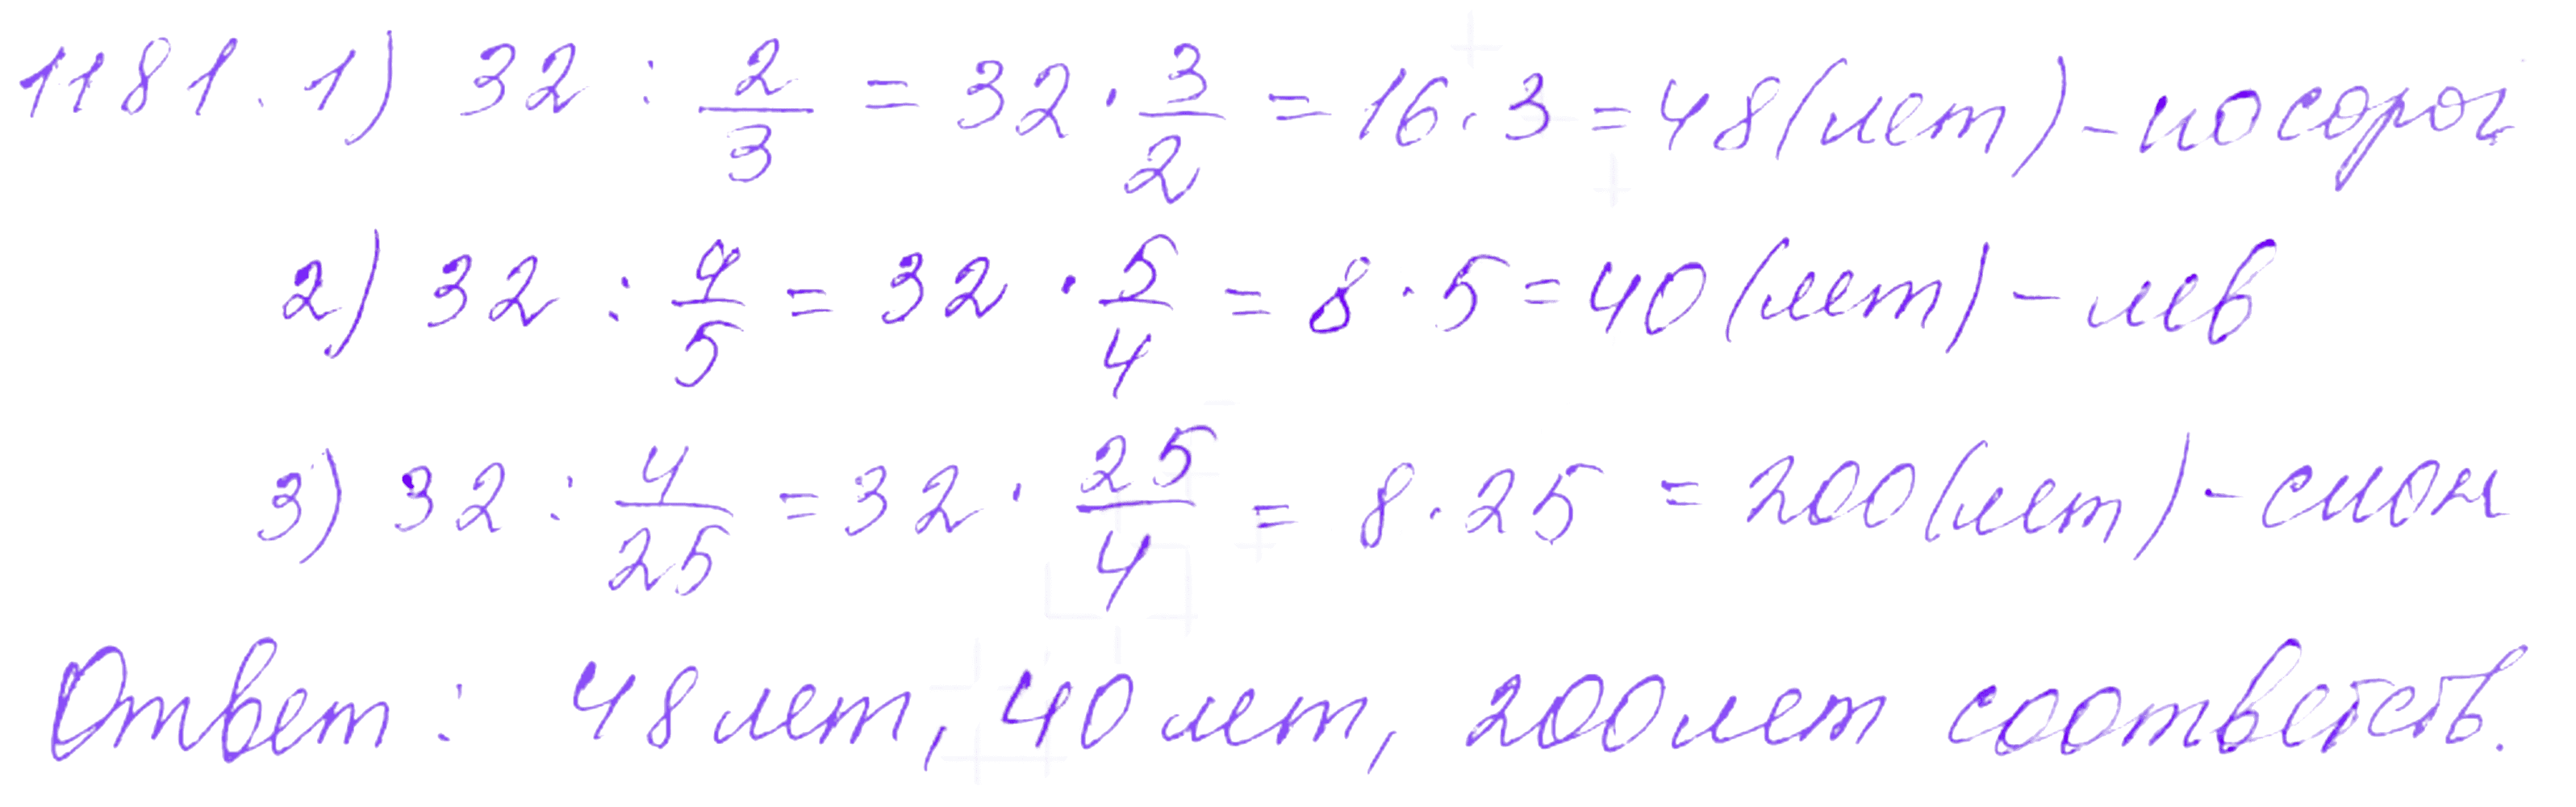 1181. 1) 32 : 2/3 = 32 · 3/2 = 16 · 3 = 48 (лет) - носорог
2) 32 : 4/5 = 32 · 5/4 = 8 · 5 = 40 (лет) - лев
3) 32 : 4/25 = 32 · 25/4 = 8 · 25 = 200 (лет) - слон
Ответ: 48 лет, 40 лет, 200 лет соответств.